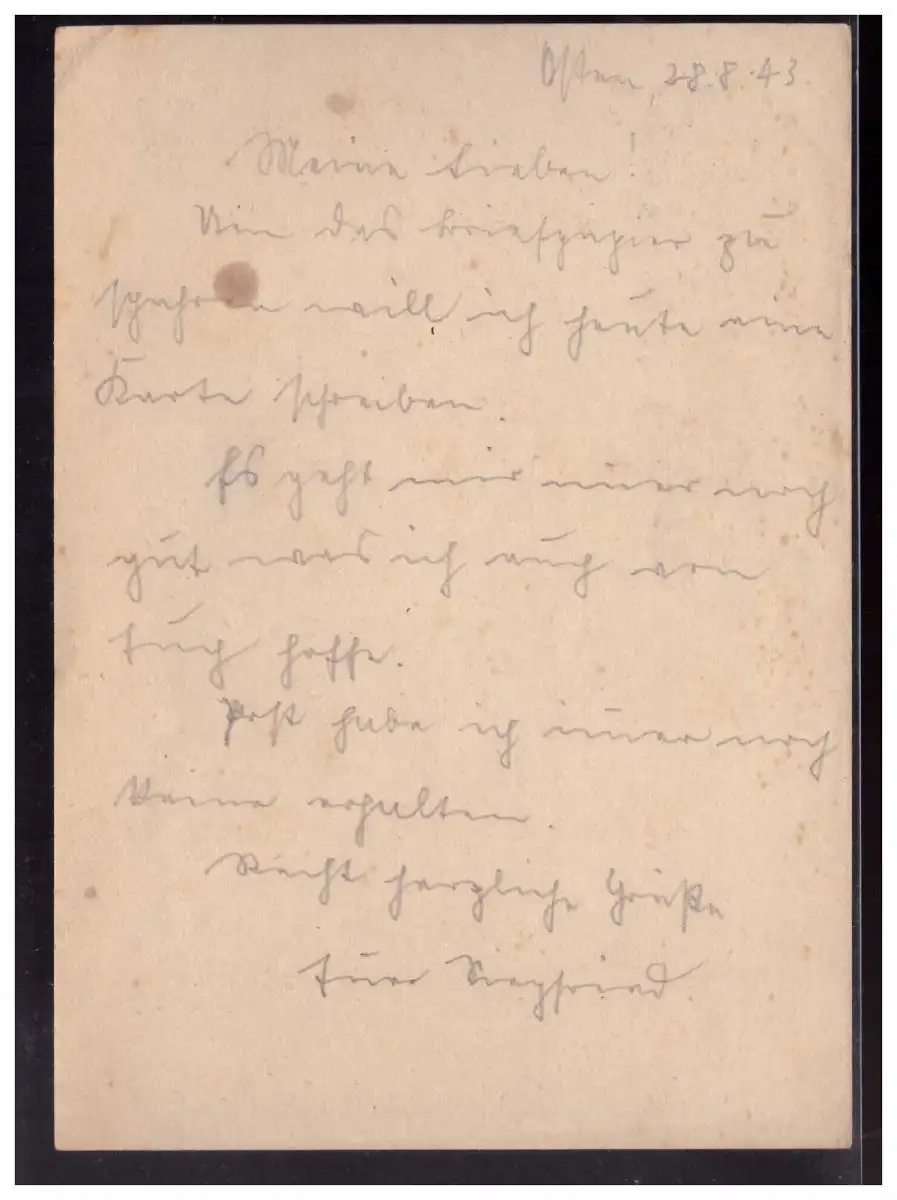 Osten, 28.8.43.
Meine Lieben!
Um das Briefpapier zu
spahren will ich heute eine
Karte schreiben.
Es geht mir im̅er noch
gut was ich auch von
Euch hoffe.
Post habe ich im̅er noch
keine erhalten.
Recht herzliche Grüße
Euer Siegfried.